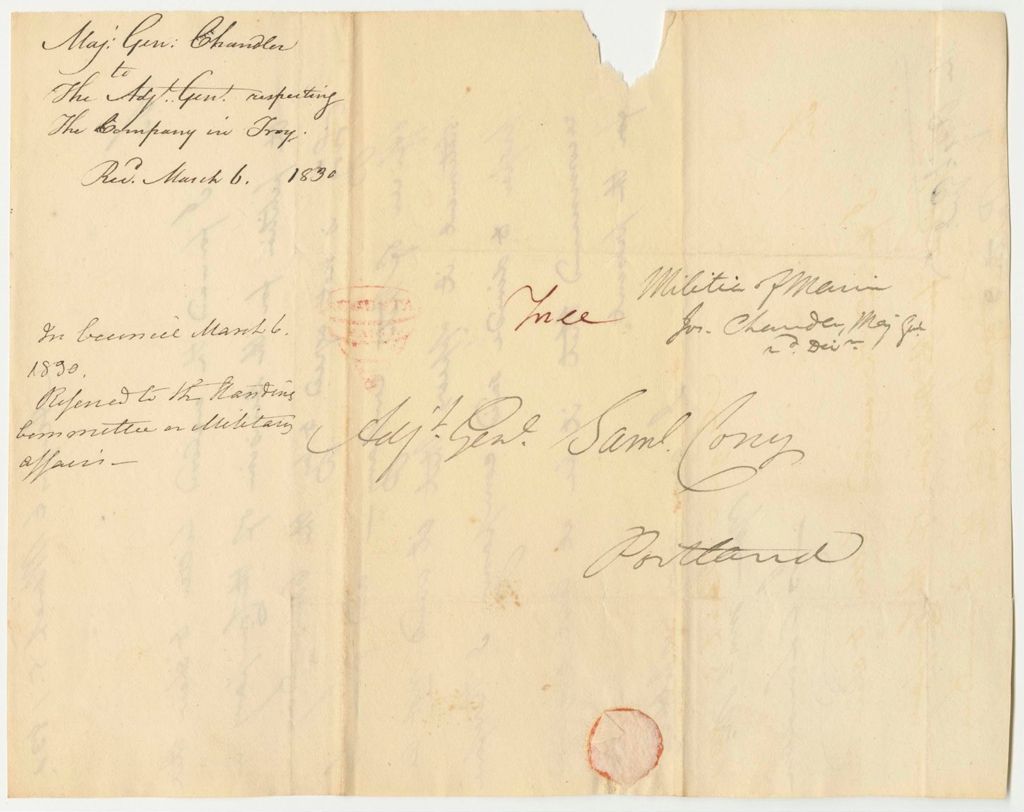 Maj: Gen: Chandler
to
The Adjt. Genl. respecting
The Company in Troy.
Recd. March 6. 1830
In Council March 6.
1830.
Referred to the Standing
Committee on Military
affairs—
AUGUSTA
Free
Militia of Maine
Jos. Chandler, Maj Genl
2d. Divn
Adjt. Genl. Saml. Cony
Portland